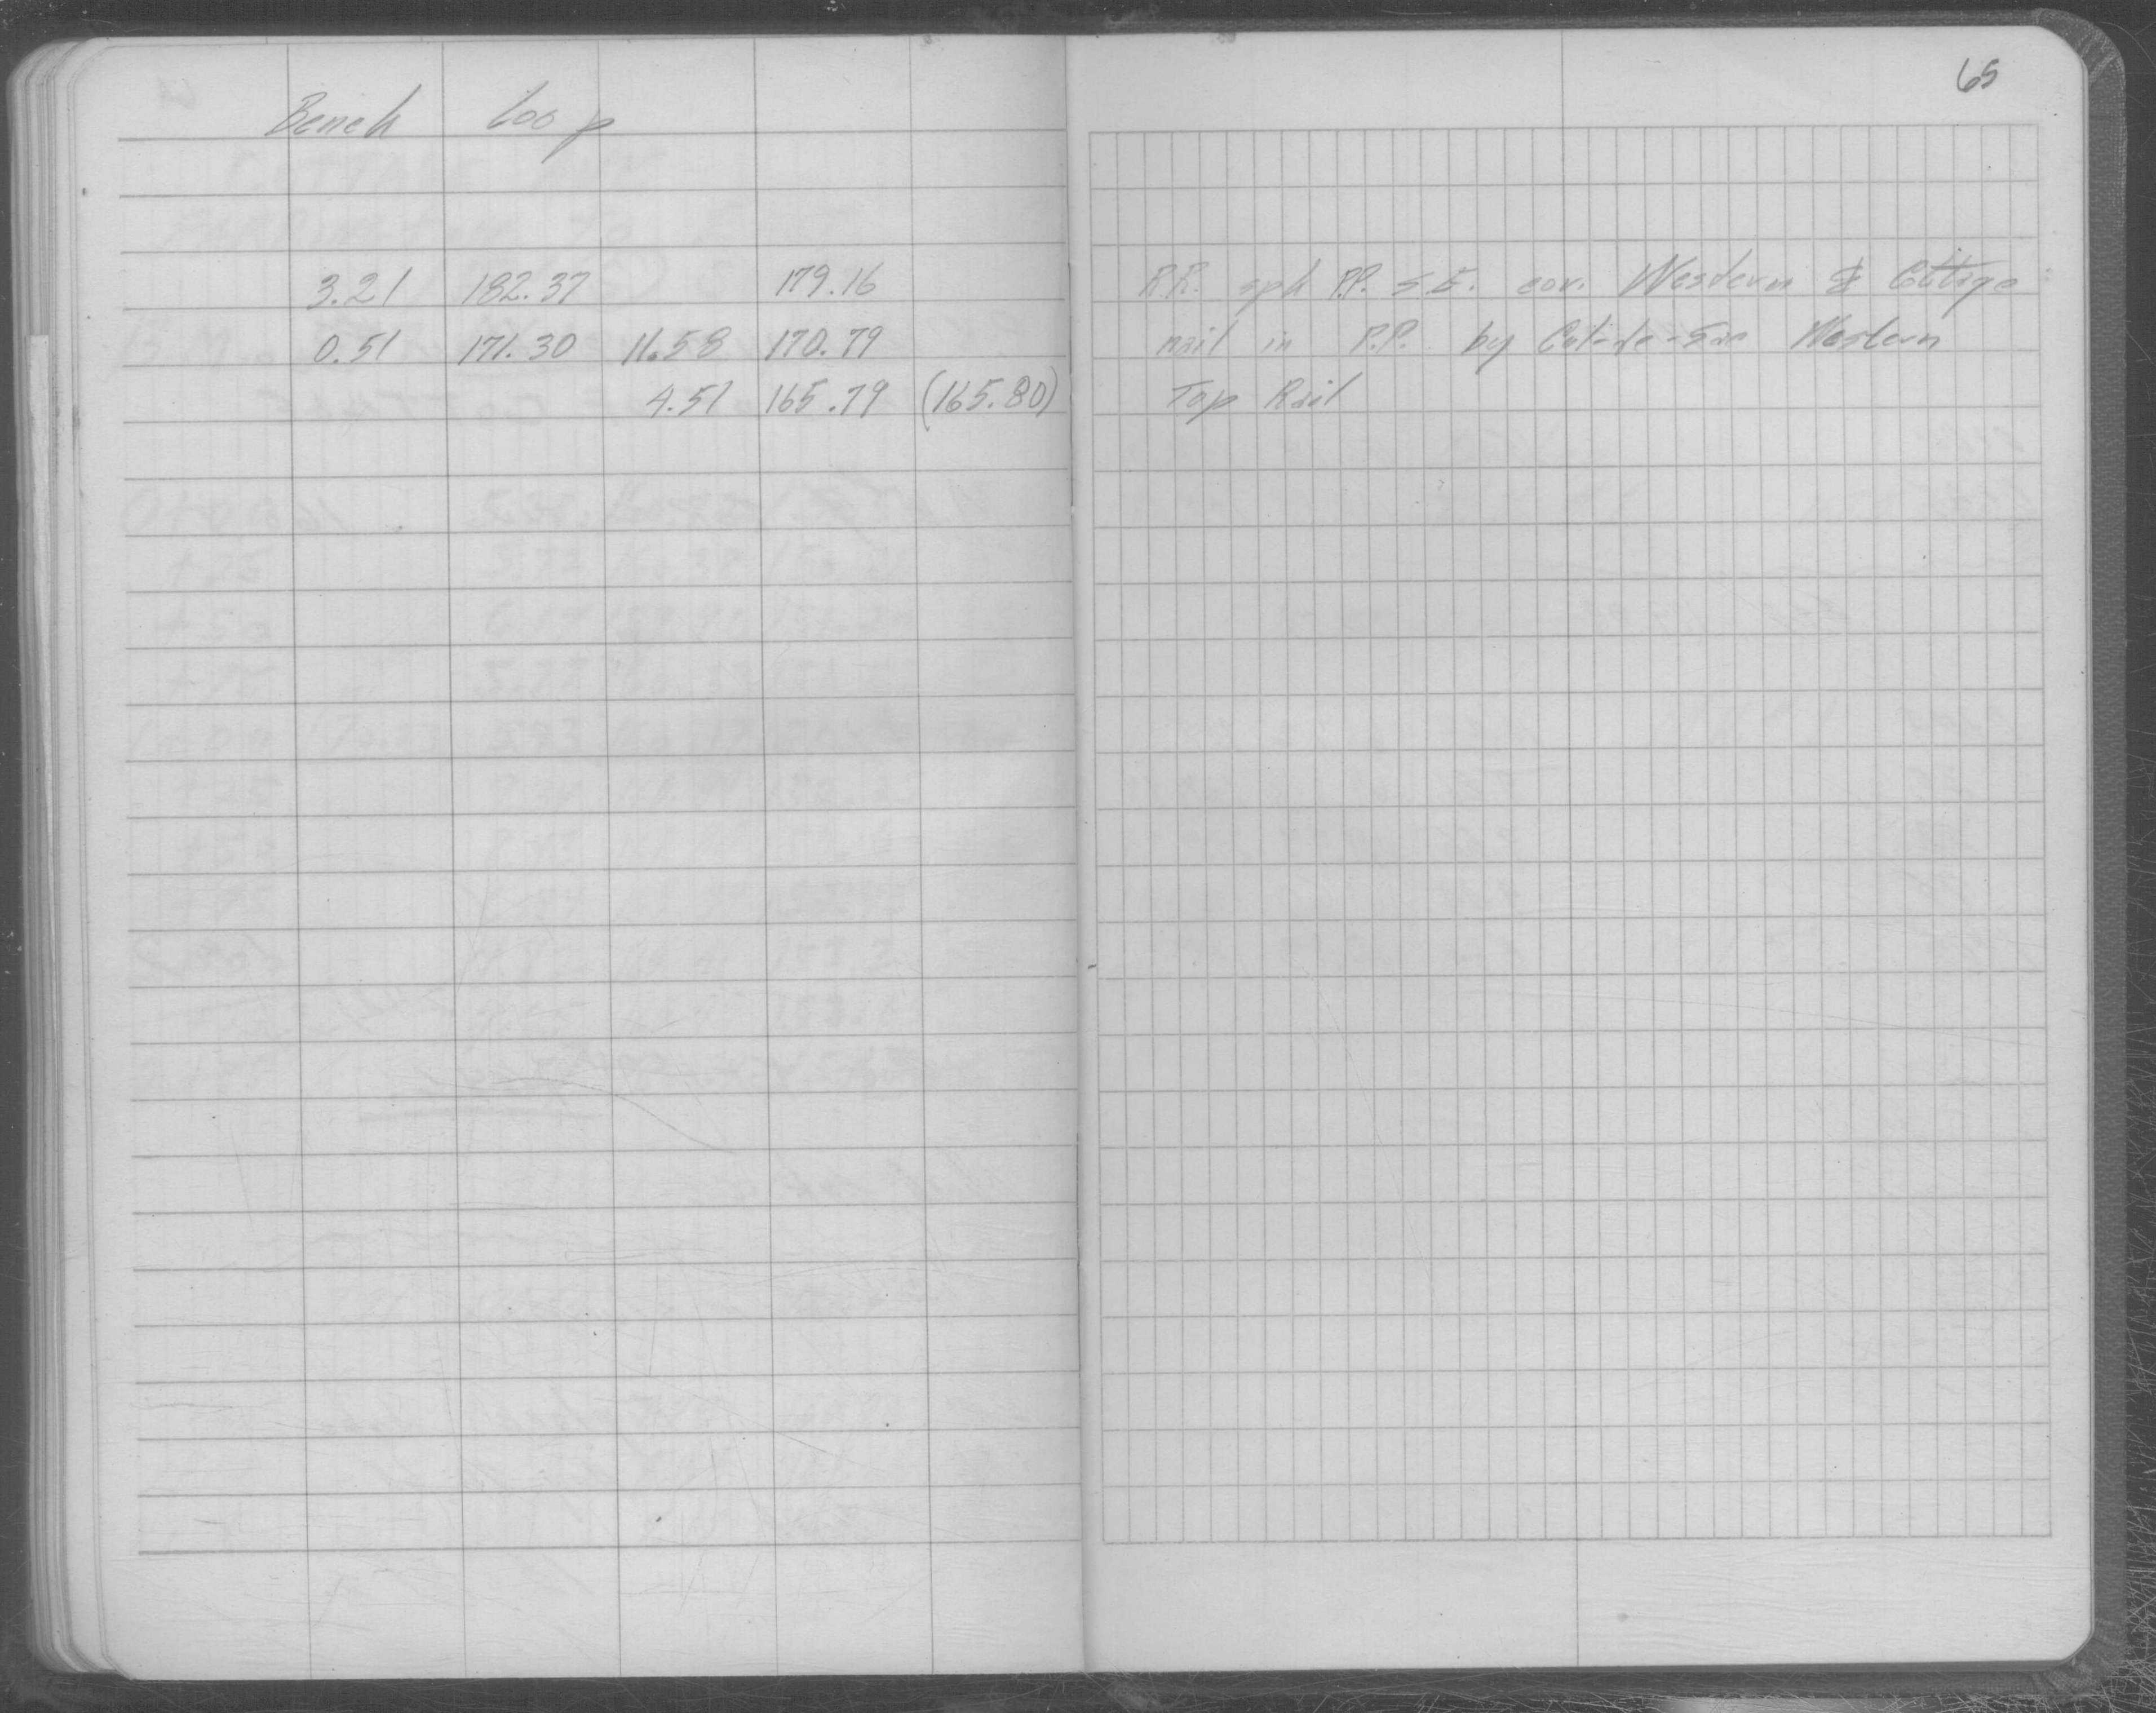 65
Bench Loop
3.21 182.37 179.16 R.R. spk P.P. S.E. cor. Western & Cottage
0.51 171.30 11.58 170.79 nail in P.P. by Cul-de-Sac Western
4.51 165.79 (165.80) Top Rail